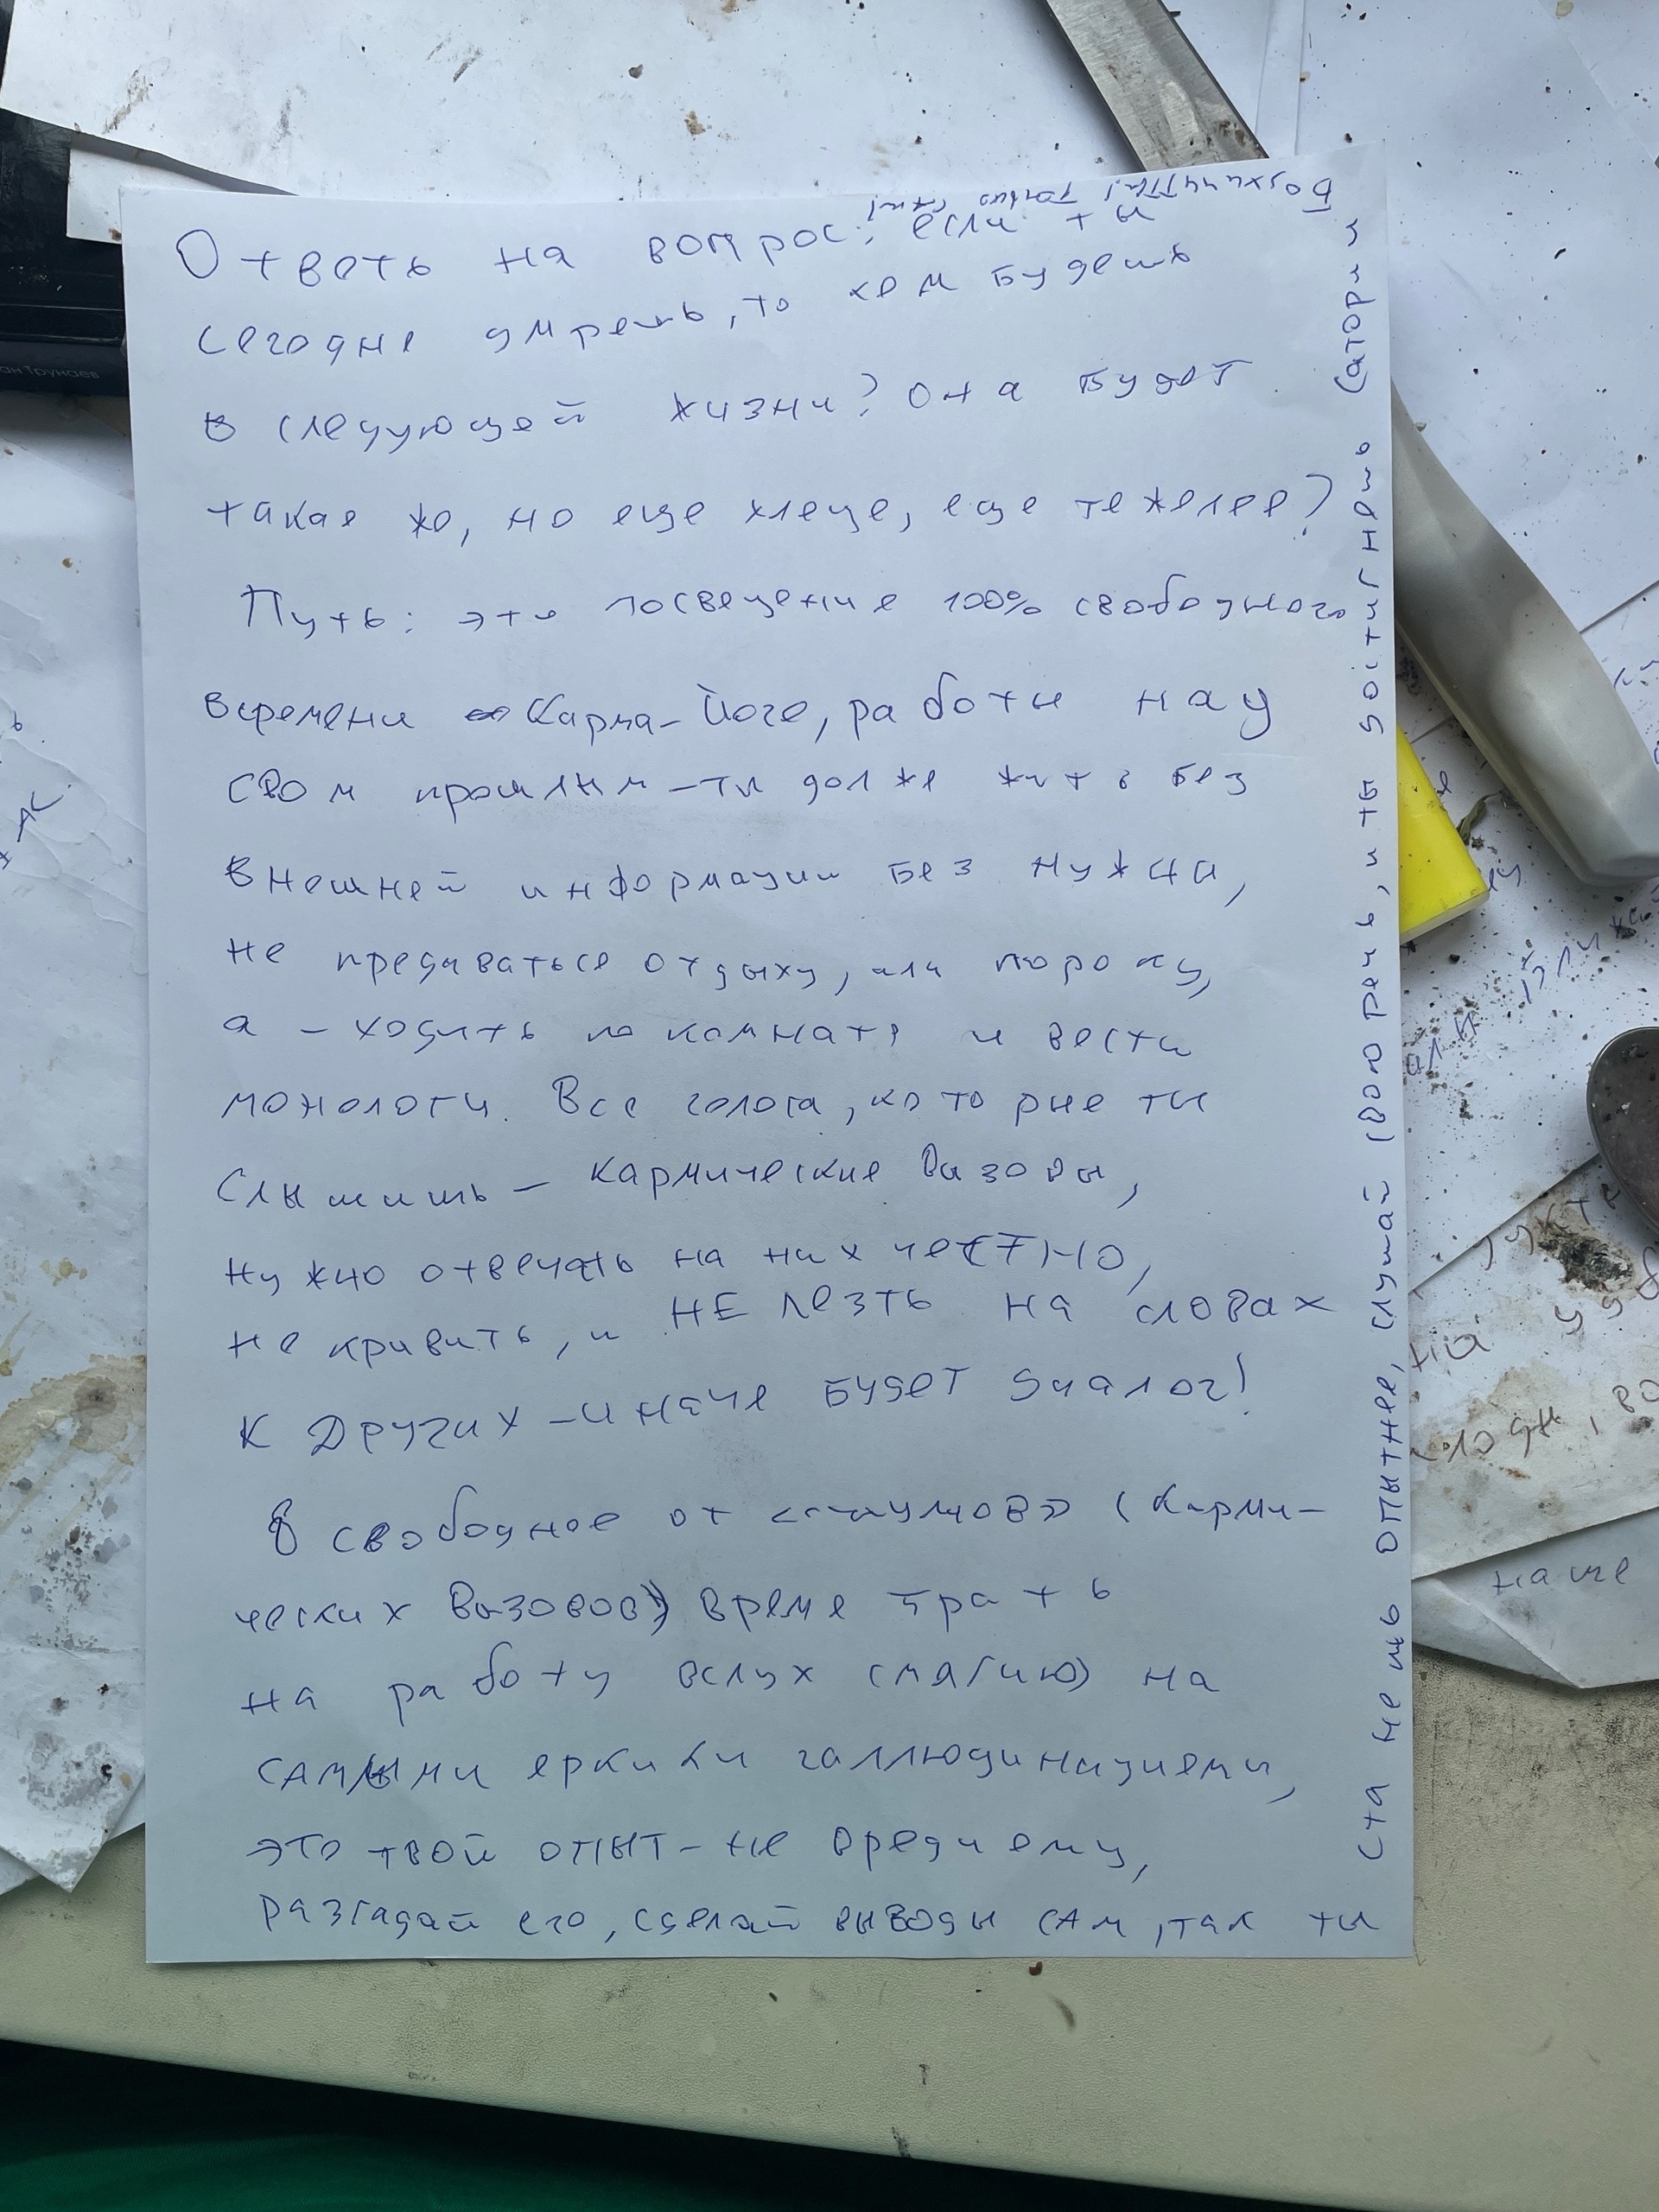 Ответь на вопрос: если ты
сегодне умрешь, то кем будешь
в следующей жизни? Она будет
такае же, но еще хлеще, еще тежелее?
Путь: это посвещение 100% свободного
времени Карма-Йоге, работы над
свом прошлым – ты долже жить без
внешней информации без нужды,
не предаваться отдыху, или пороку,
а – ходить по комнате и вести
монологи. Все голоса, которые ты
слышишь – кармические вызовы,
нужно отвечать на них честно,
не кривить, и НЕ лезть на словах
к Других – иначе будет диалог!
В свободное от «стаумов» (карми-
ческих вызовов) време трать
на работу вслух (магию) на
самыми еркими галлюцинациеми,
это твой опыт – не вреди ему,
разгадай его, сделай выводы сам, так ты
станешь опытнее, слушай свою речь, и ты достигнешь сатори и
Бодхичитты! Только сам!
ан Трунаев